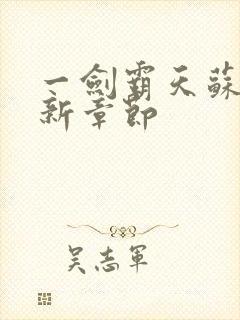 一劍霸天蘇
新章節
吳志軍